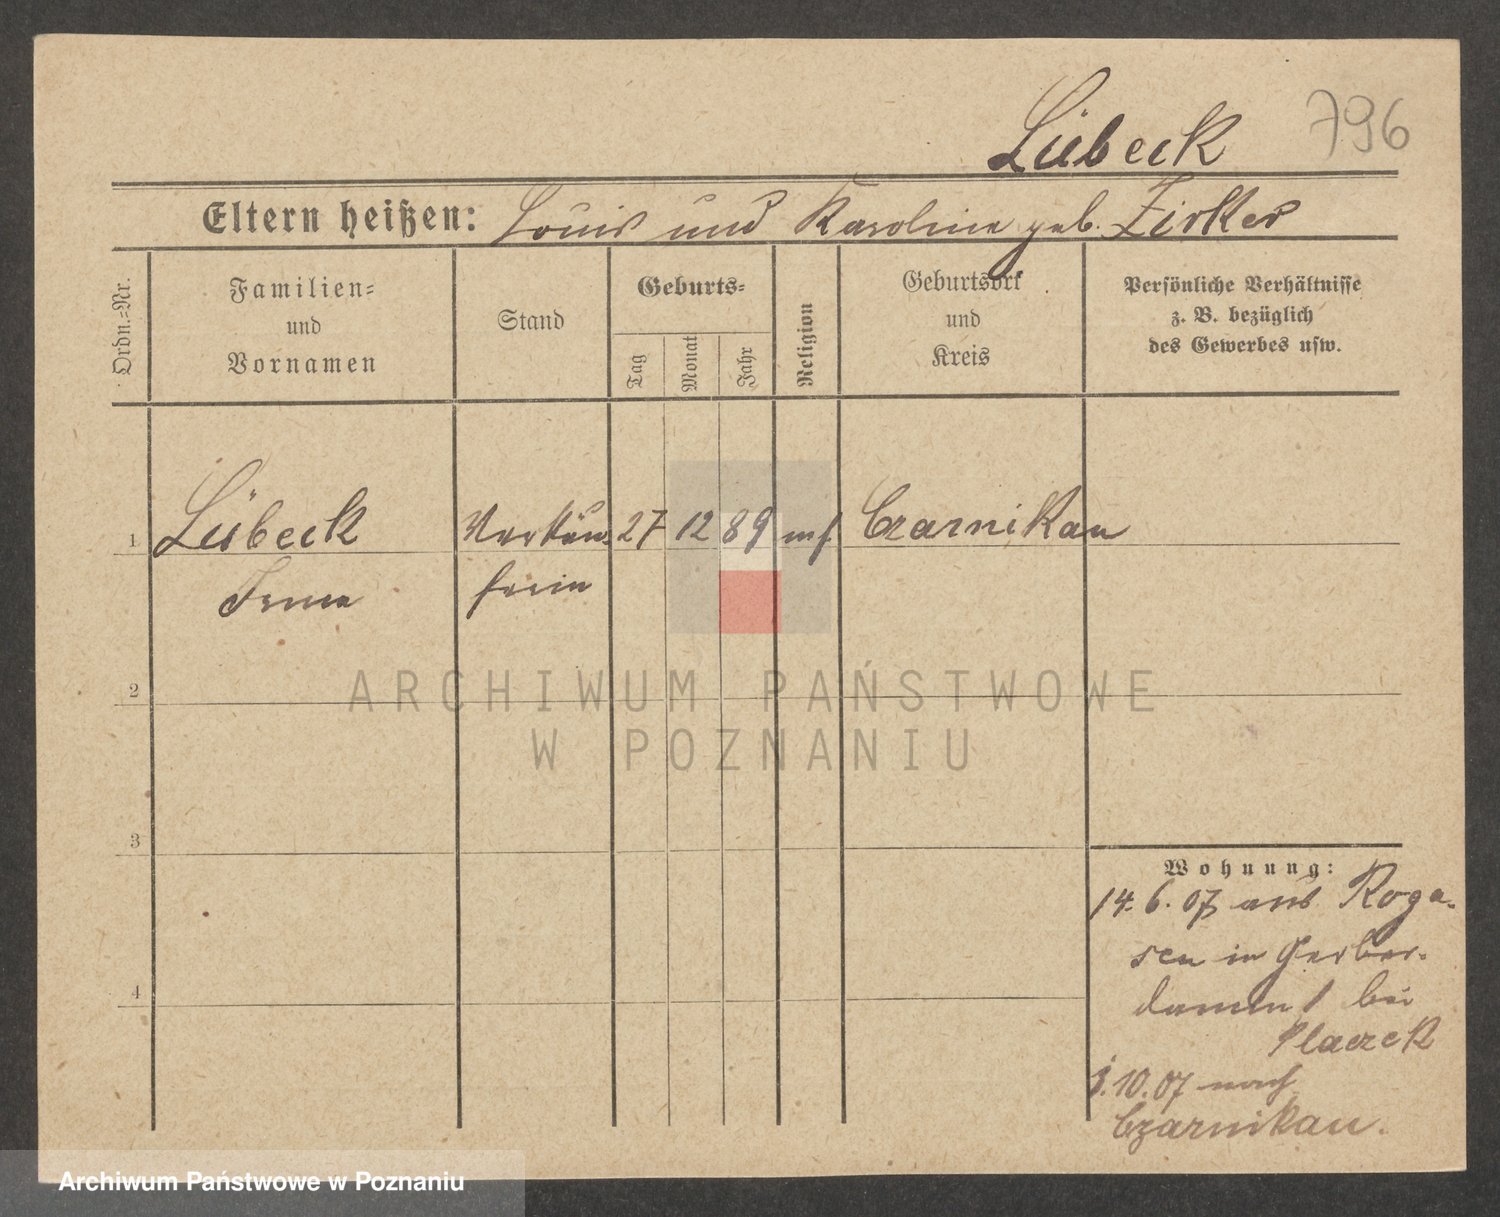 Lübeck 796
Eltern heißen: Louis und Karoline geb. Zirker
Ordn.=Nr.
Familien=
und
Vornamen
Stand
Geburts=
Tag
Monat
Jahr
Religion
Geburtsort
und
Kreis
Persönliche Verhältnisse
z. B. bezüglich
des Gewerbes usw.
1 Lübeck Verkäu- 27 12 89 ms. Czarnikau
Irma ferin
2
ARCHIWUM PAŃSTWOWE
W POZNANIU
3
Wohnung:
14. 6. 07 aus Roga-
sen in Gerber-
damm 1 bei
Placzek
1. 10. 07 nach
Czarnikau.
4
Archiwum Państwowe w Poznaniu